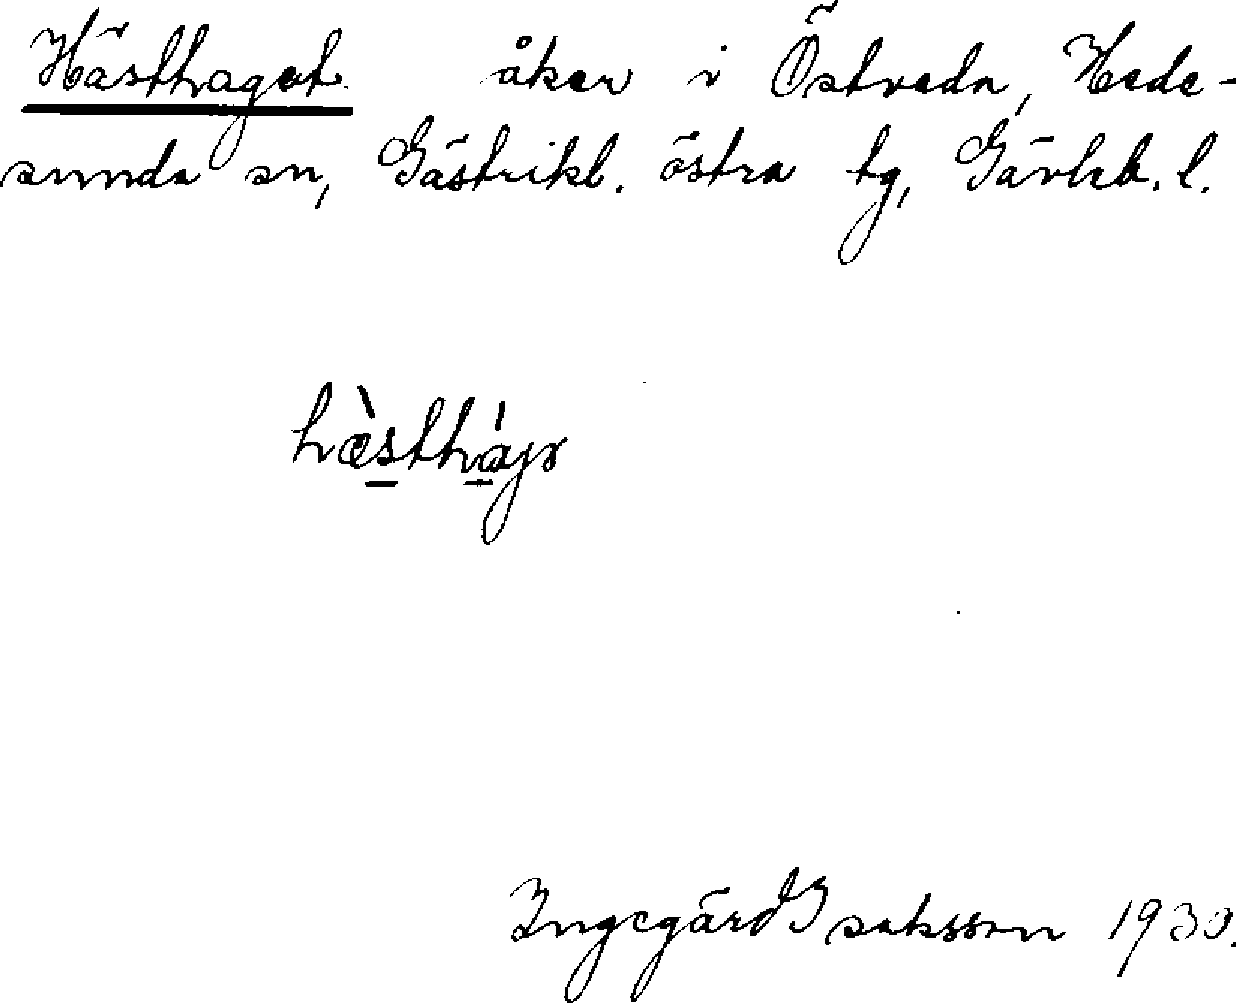 Hästhaget åker i Östveda, Hede-
sunda sn, Gästrikl. östra tg, Gävleb. l.
hæ̀sthájr
Ingegärd Isaksson 1930.